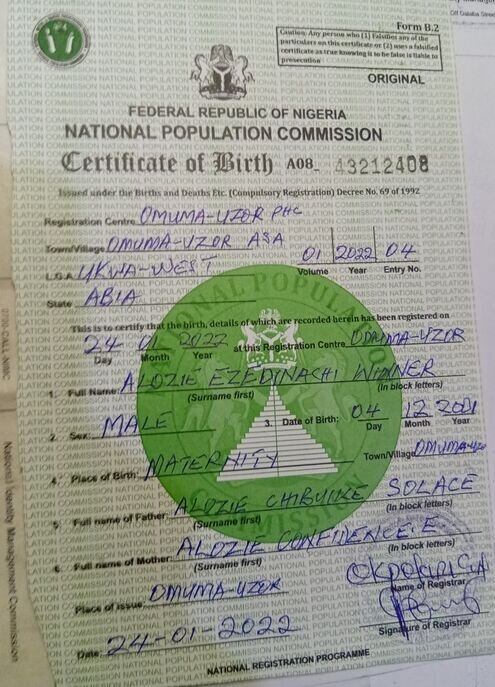 Off Dalaba Street
Form B.2
Caution: Any person who (1) Falsifies any of the
particulars on this certificate or (2) uses a falsified
certificate as true knowing it to be false is liable to
prosecution
ORIGINAL
FEDERAL REPUBLIC OF NIGERIA
NATIONAL POPULATION COMMISSION
Certificate of Birth A08 43212408
Issued under the Births and Deaths Etc. (Compulsory Registration) Decree No. 69 of 1992
Registration Centre OMUMA-UZOR PHC
Town/Village OMUMA-UZOR ASA
01 2022 04
L.G.A UKWA-WEST
Volume Year Entry No.
State ABIA
This is to certify that the birth, details of which are recorded herein has been registered on
24 01 2022 at this Registration Centre OMUMA-UZOR
Day Month Year
1. Full Name: ALOZIE EZEDINACHI WINNER
(Surname first) (In block letters)
2. Sex: MALE 3. Date of Birth: 04 12 2021
Day Month Year
4. Place of Birth: MATERNITY Town/Village OMUMA-UZO
5. Full name of Father: ALOZIE CHIBUIKE SOLACE
(Surname first) (In block letters)
6. Full name of Mother: ALOZIE CONFIDENCE. E
(Surname first) (In block letters)
Place of issue: OMUMA-UZOR
Name of Registrar
Date: 24-01-2022
Signature of Registrar
NATIONAL REGISTRATION PROGRAMME
National Identity Management Commission
NATIONAL POPULATION COMMISSION